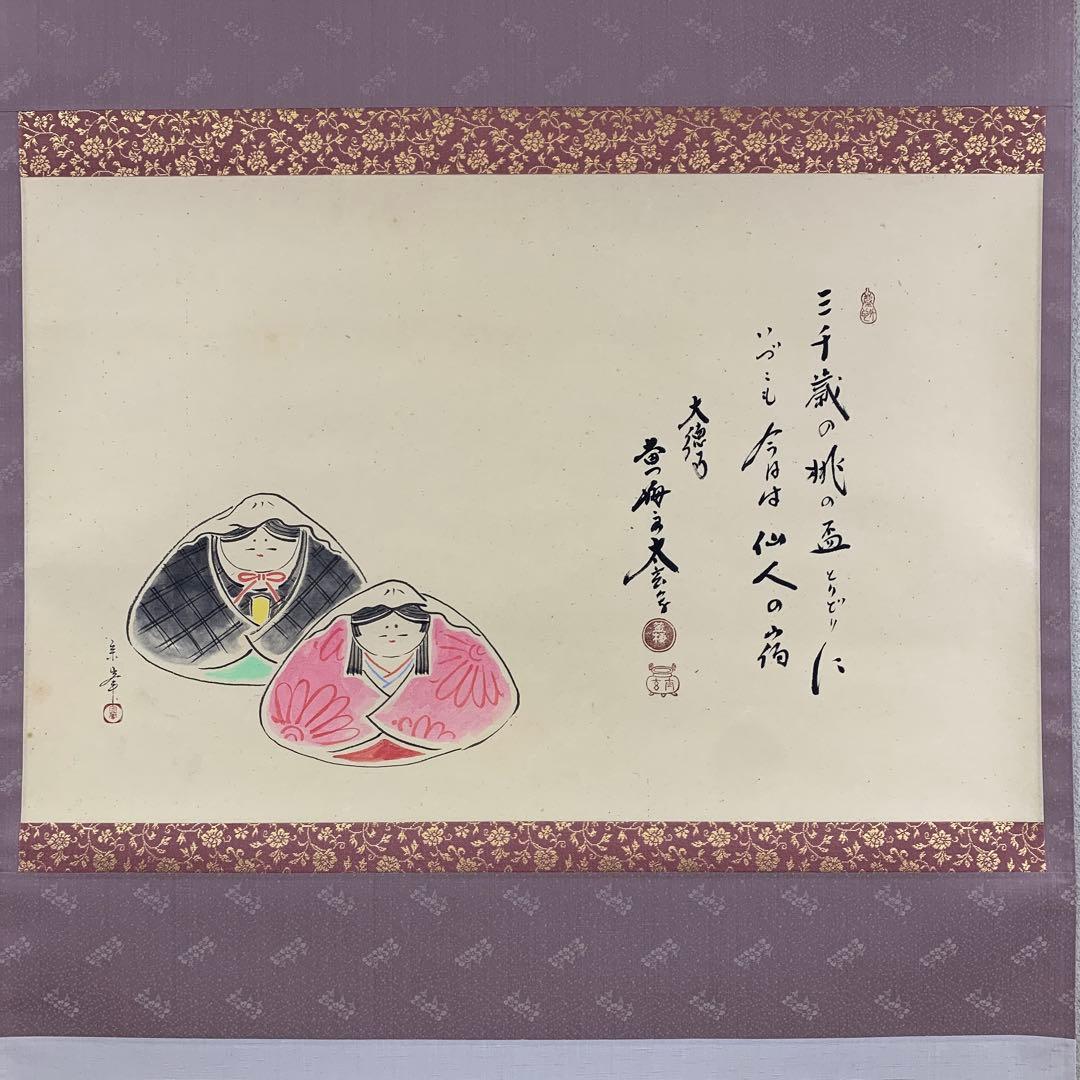 三千歳の桃の盃とりどりに
いづこも今日は仙人の宿
大徳寺
黄梅主太玄